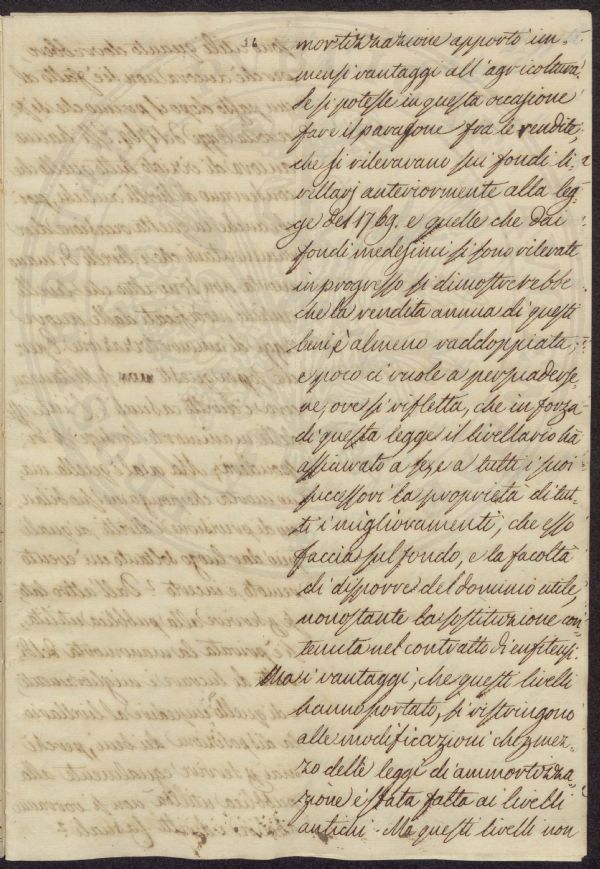 16
mortizzazione apportò im-
mensi vantaggi all'agricoltura.
Se si potesse in questa occasione
fare il paragone fra le rendite,
che si rilevavano sui fondi li-
vellarj anteriormente alla leg-
ge del 1769. e quelle che dai
fondi medesimi si sono rilevate
in progresso si dimostrerebbe
che la rendita annua di questi
beni è almeno raddoppiata,
e poco ci vuole a persuaderse-
ne, ove si rifletta, che in forza
di questa legge il livellario ha
assicurato a se, e a tutti i suoi
successori la proprietà di tut-
ti i miglioramenti, che esso
faccia sul fondo, e la facoltà
di disporre del dominio utile,
nonostante la sostituzione con-
tenuta nel contratto d'enfiteusi.
Ma i vantaggi, che questi livelli
hanno portato, si ristringono
alle modificazioni che p mez-
zo delle leggi di ammortizza-
zione è stata fatta ai livelli
antichi. Ma questi livelli non